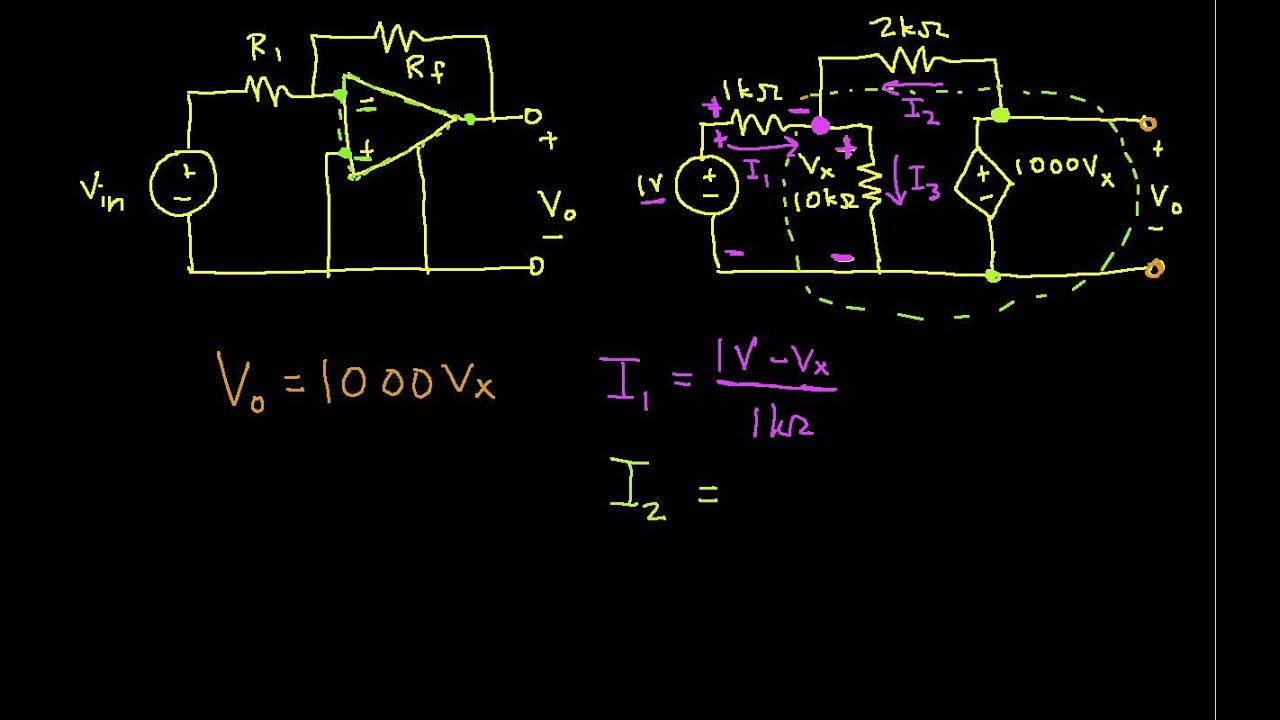 R₁
Rf
Vin
+
−
=
+
+
Vo
−
2kΩ
I₂
1kΩ
+
−
+
I₁
1V
+
−
−
Vx
10kΩ
+
−
I₃
+
−
1000Vx
+
Vo
−
Vo = 1000Vx
I₁ = 1V − Vx / 1kΩ
I₂ =